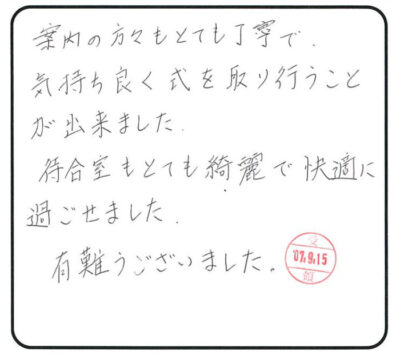 案内の方々もとても丁寧で.
気持ち良く式を取り行うこと
が出来ました.
待合室もとても綺麗で快適に
過ごせました.
有難うございました。
受
'07.9.15